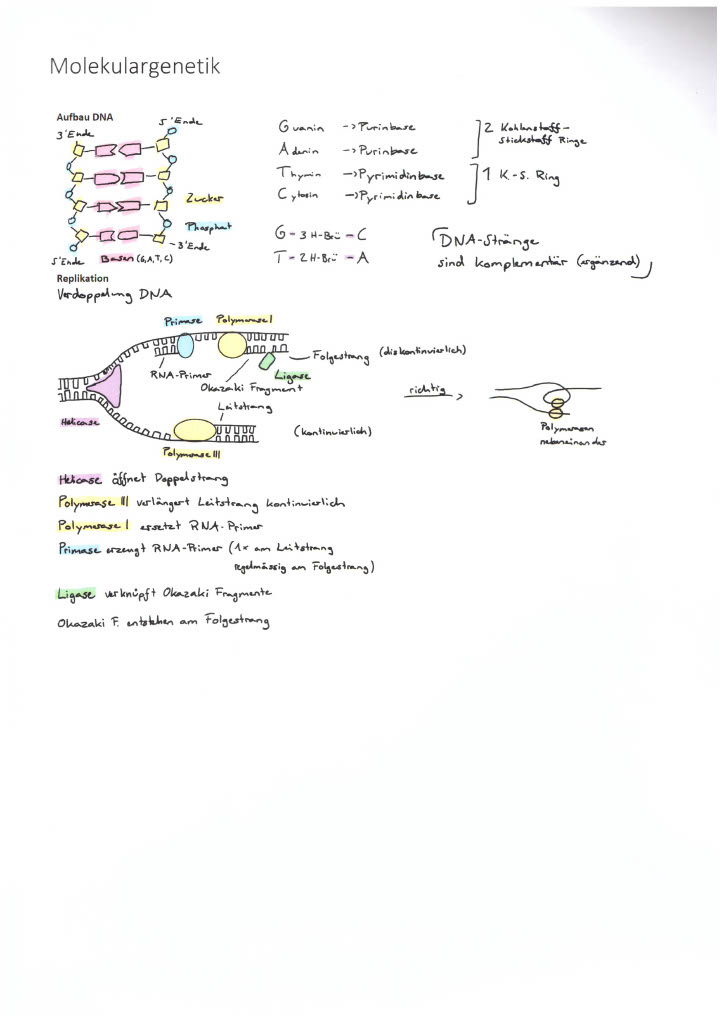 Molekulargenetik
Aufbau DNA
5'Ende
3'Ende
Zucker
Phosphat
3'Ende
5'Ende Basen (G, A, T, C)
Guanin -> Purinbase
Adenin -> Purinbase
Thymin -> Pyrimidinbase
Cytosin -> Pyrimidinbase
2 Kohlenstoff-
Stickstoff Ringe
1 K.-S. Ring
G - 3 H-Brü - C
T - 2 H-Brü - A
DNA-Stränge
sind komplementär (ergänzend)
Replikation
Verdoppelung DNA
Primase Polymerase I
Folgestrang (diskontinuierlich)
RNA-Primer
Ligase
Okazaki Fragment
Leitstrang
Helicase
(kontinuierlich)
Polymerase III
richtig
Polymerasen
nebeneinander
Helicase öffnet Doppelstrang
Polymerase III verlängert Leitstrang kontinuierlich
Polymerase I ersetzt RNA-Primer
Primase erzeugt RNA-Primer (1x am Leitstrang
regelmässig am Folgestrang)
Ligase verknüpft Okazaki Fragmente
Okazaki F. entstehen am Folgestrang